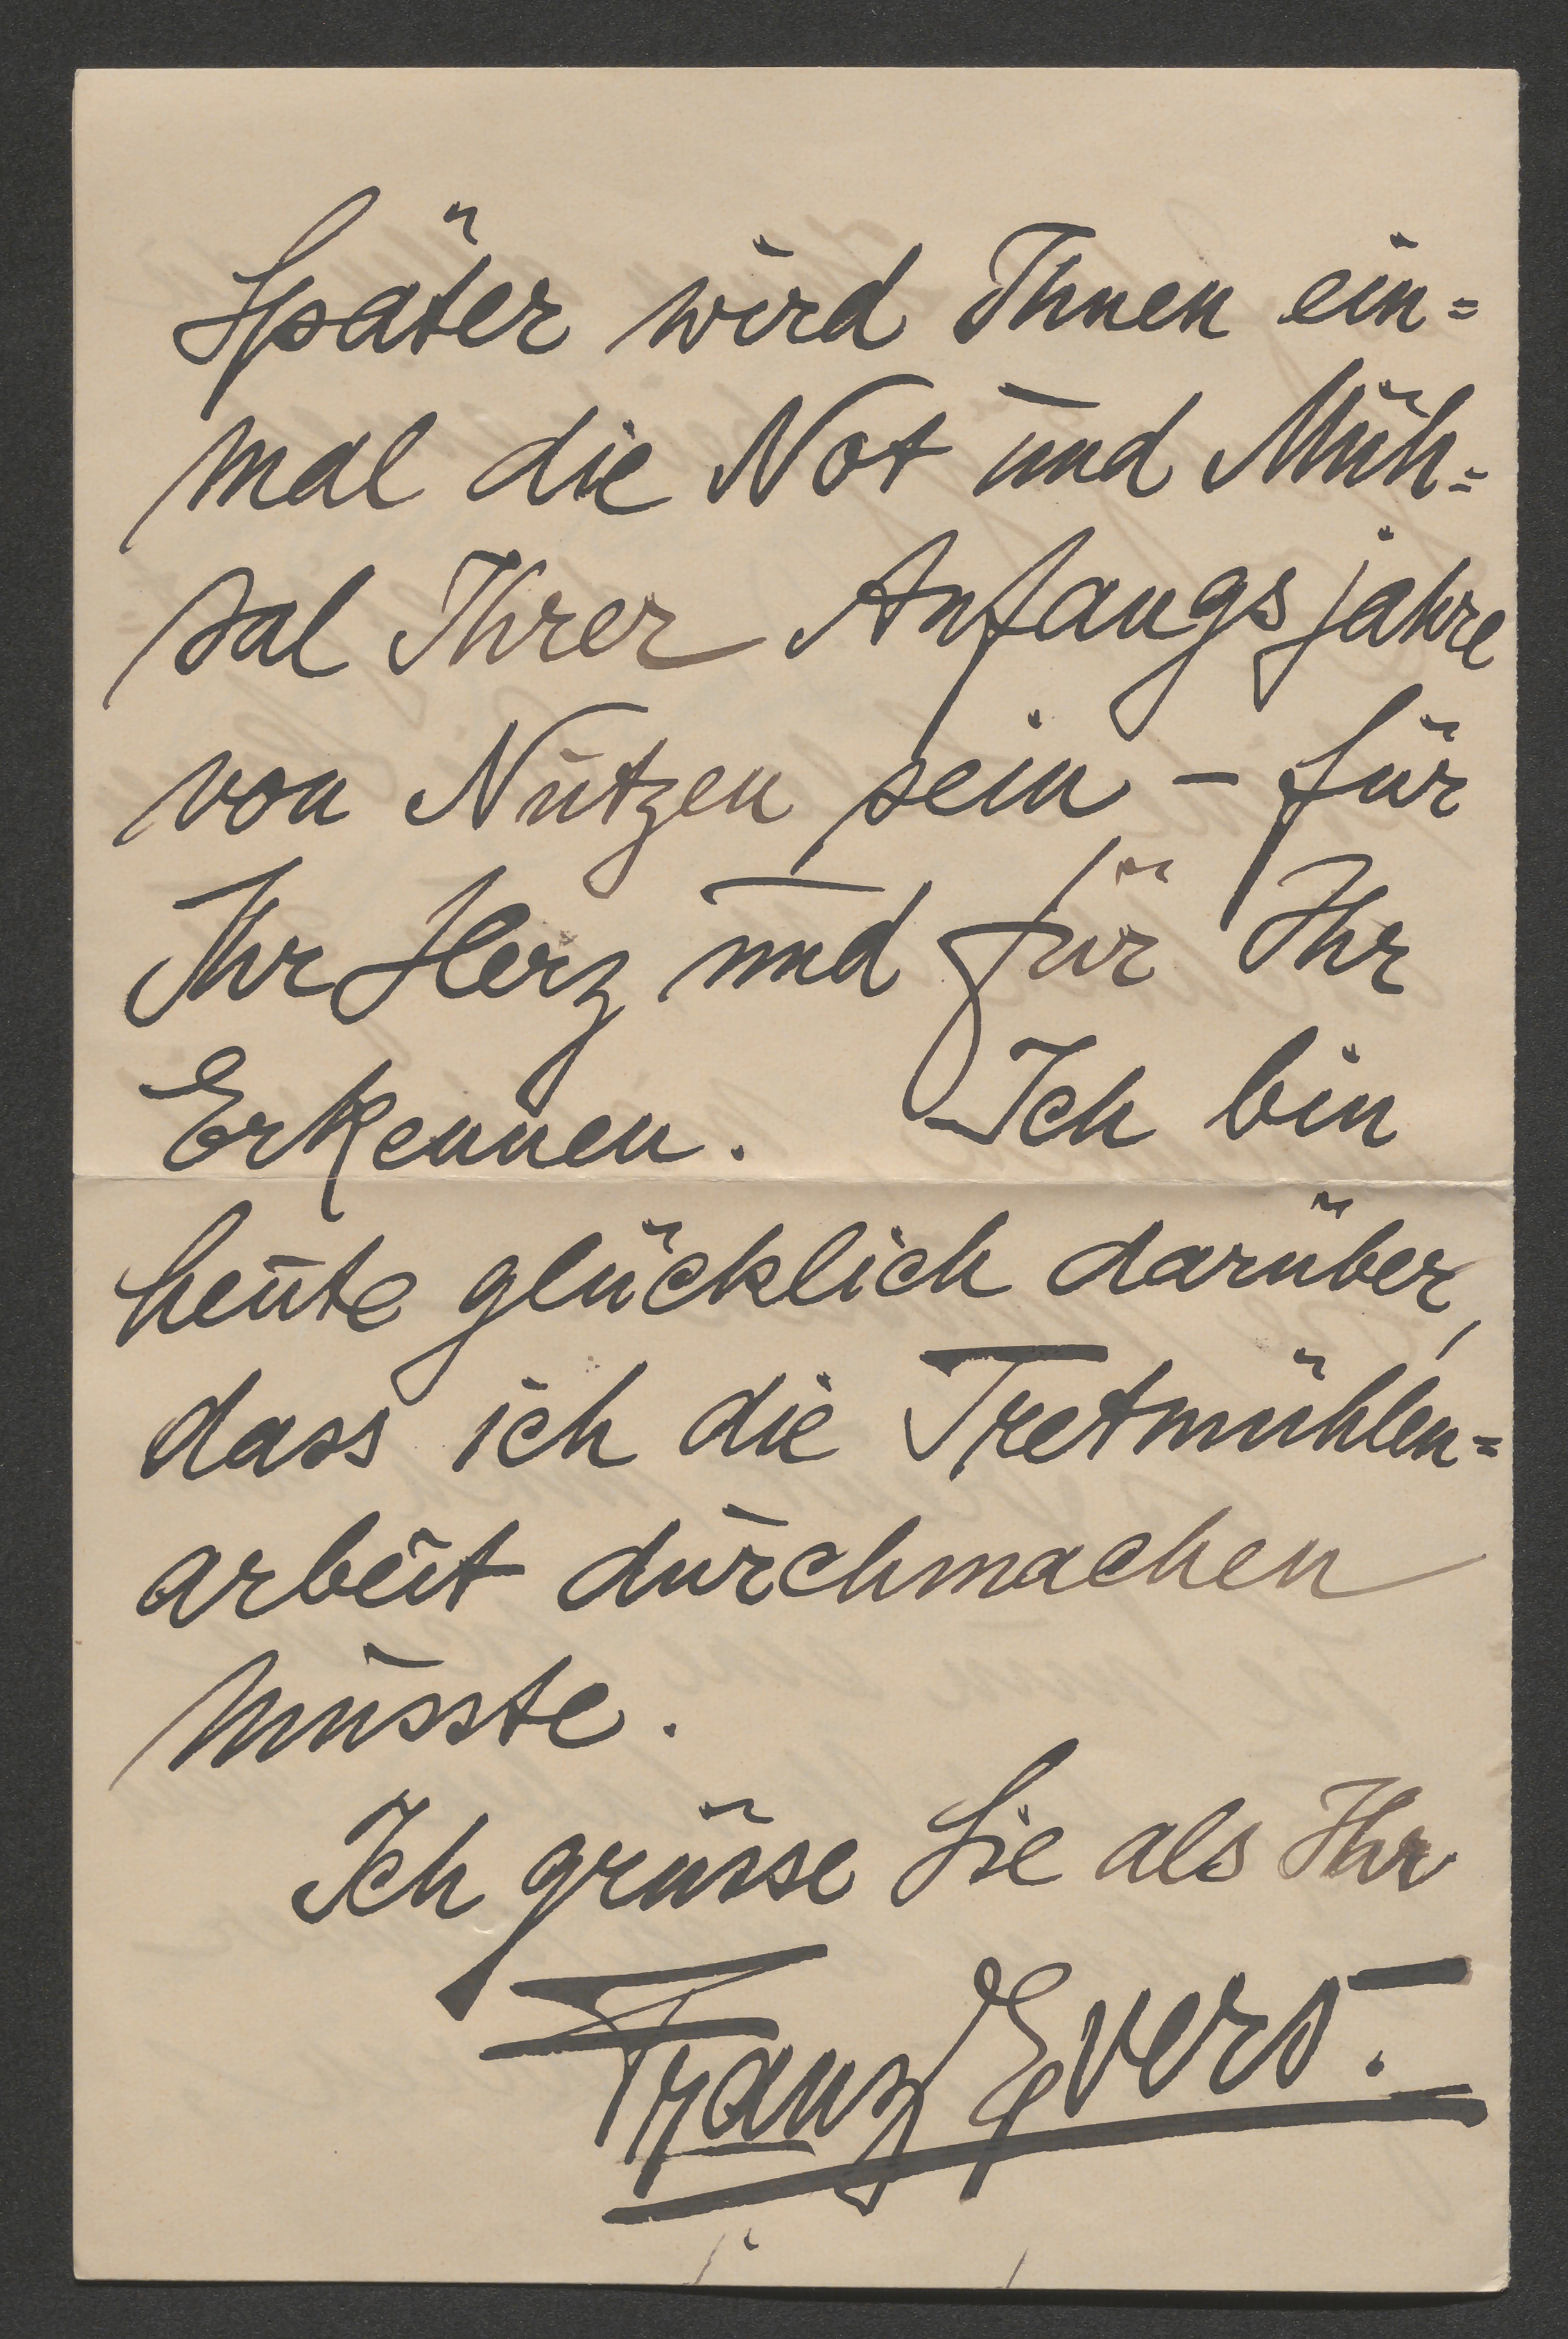 Später wird Ihnen ein=
mal die Not und Müh=
sal Ihrer Anfangsjahre
von Nutzen sein – für
Ihr Herz und für Ihr
Erkennen. Ich bin
heute glücklich darüber,
dass ich die Tretmühlen=
arbeit durchmachen
musste.
Ich grüsse Sie als Ihr
Franz Evers.